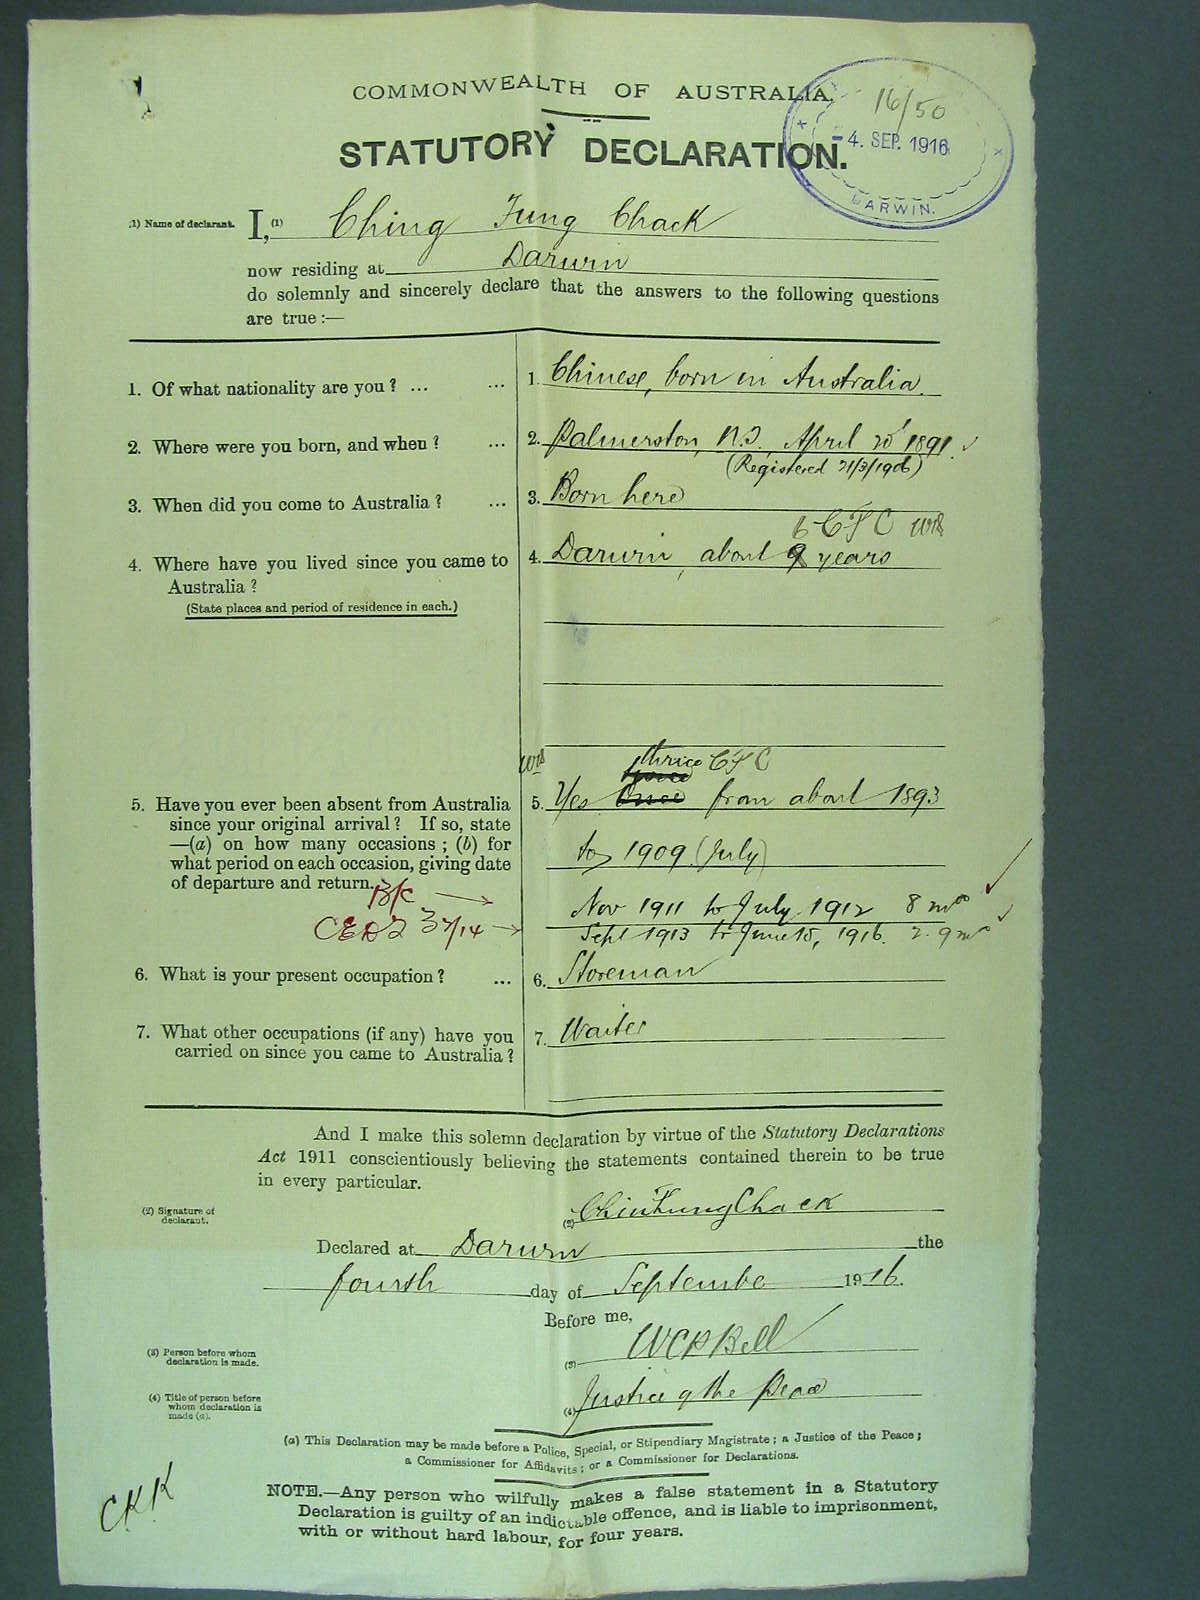 COMMONWEALTH OF AUSTRALIA.
16/50
-4. SEP. 1916
DARWIN.
STATUTORY DECLARATION.
(1) Name of declarant. I, (1) Ching Fung Chack
now residing at Darwin
do solemnly and sincerely declare that the answers to the following questions
are true :—
1. Of what nationality are you ? ... ... 1. Chinese, born in Australia.
2. Where were you born, and when ? ... 2. Palmerston, N.T., April 20 1891.
(Registered 21/3/1906)
3. When did you come to Australia ? ... 3. Born here
6 CFC
4. Where have you lived since you came to 4. Darwin, about 9 years
Australia ?
(State places and period of residence in each.)
thrice CFC
5. Have you ever been absent from Australia 5. Yes Once from about 1893
since your original arrival ? If so, state
—(a) on how many occasions ; (b) for to 1909 (July)
what period on each occasion, giving date
of departure and return.
Nov 1911 to July 1912 8 mos
CEDT 37/14 Sept 1913 to June 15, 1916. 2. 9 mos
6. What is your present occupation ? ... 6. Storeman
7. What other occupations (if any) have you 7. Waiter
carried on since you came to Australia ?
And I make this solemn declaration by virtue of the Statutory Declarations
Act 1911 conscientiously believing the statements contained therein to be true
in every particular.
(2) Signature of
declarant.
(2) Chin Fung Chack
Declared at Darwin the
fourth day of September 1916.
Before me,
(3) Person before whom
declaration is made.
(3) WCP Bell
(4) Title of person before
whom declaration is
made (a).
(4) Justice of the Peace
(a) This Declaration may be made before a Police, Special, or Stipendiary Magistrate ; a Justice of the Peace ;
a Commissioner for Affidavits ; or a Commissioner for Declarations.
CKK
NOTE.—Any person who wilfully makes a false statement in a Statutory
Declaration is guilty of an indictable offence, and is liable to imprisonment,
with or without hard labour, for four years.